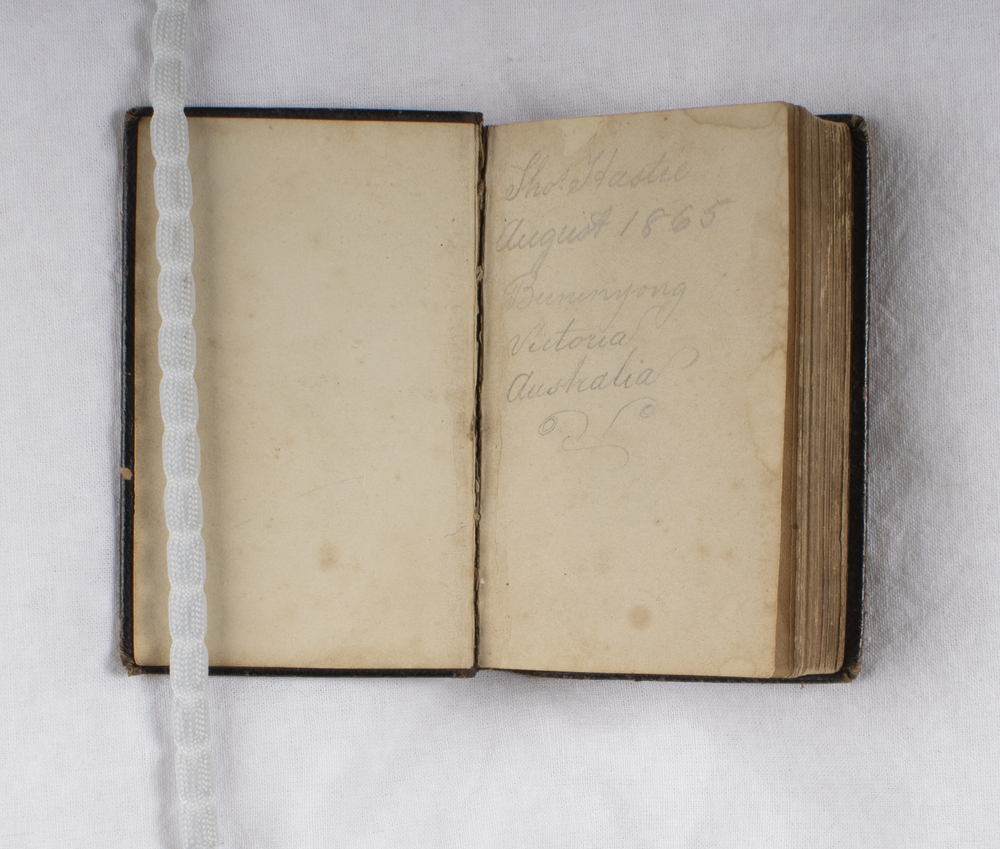 Thos. Hastie
August 1865
Buninyong
Victoria
Australia